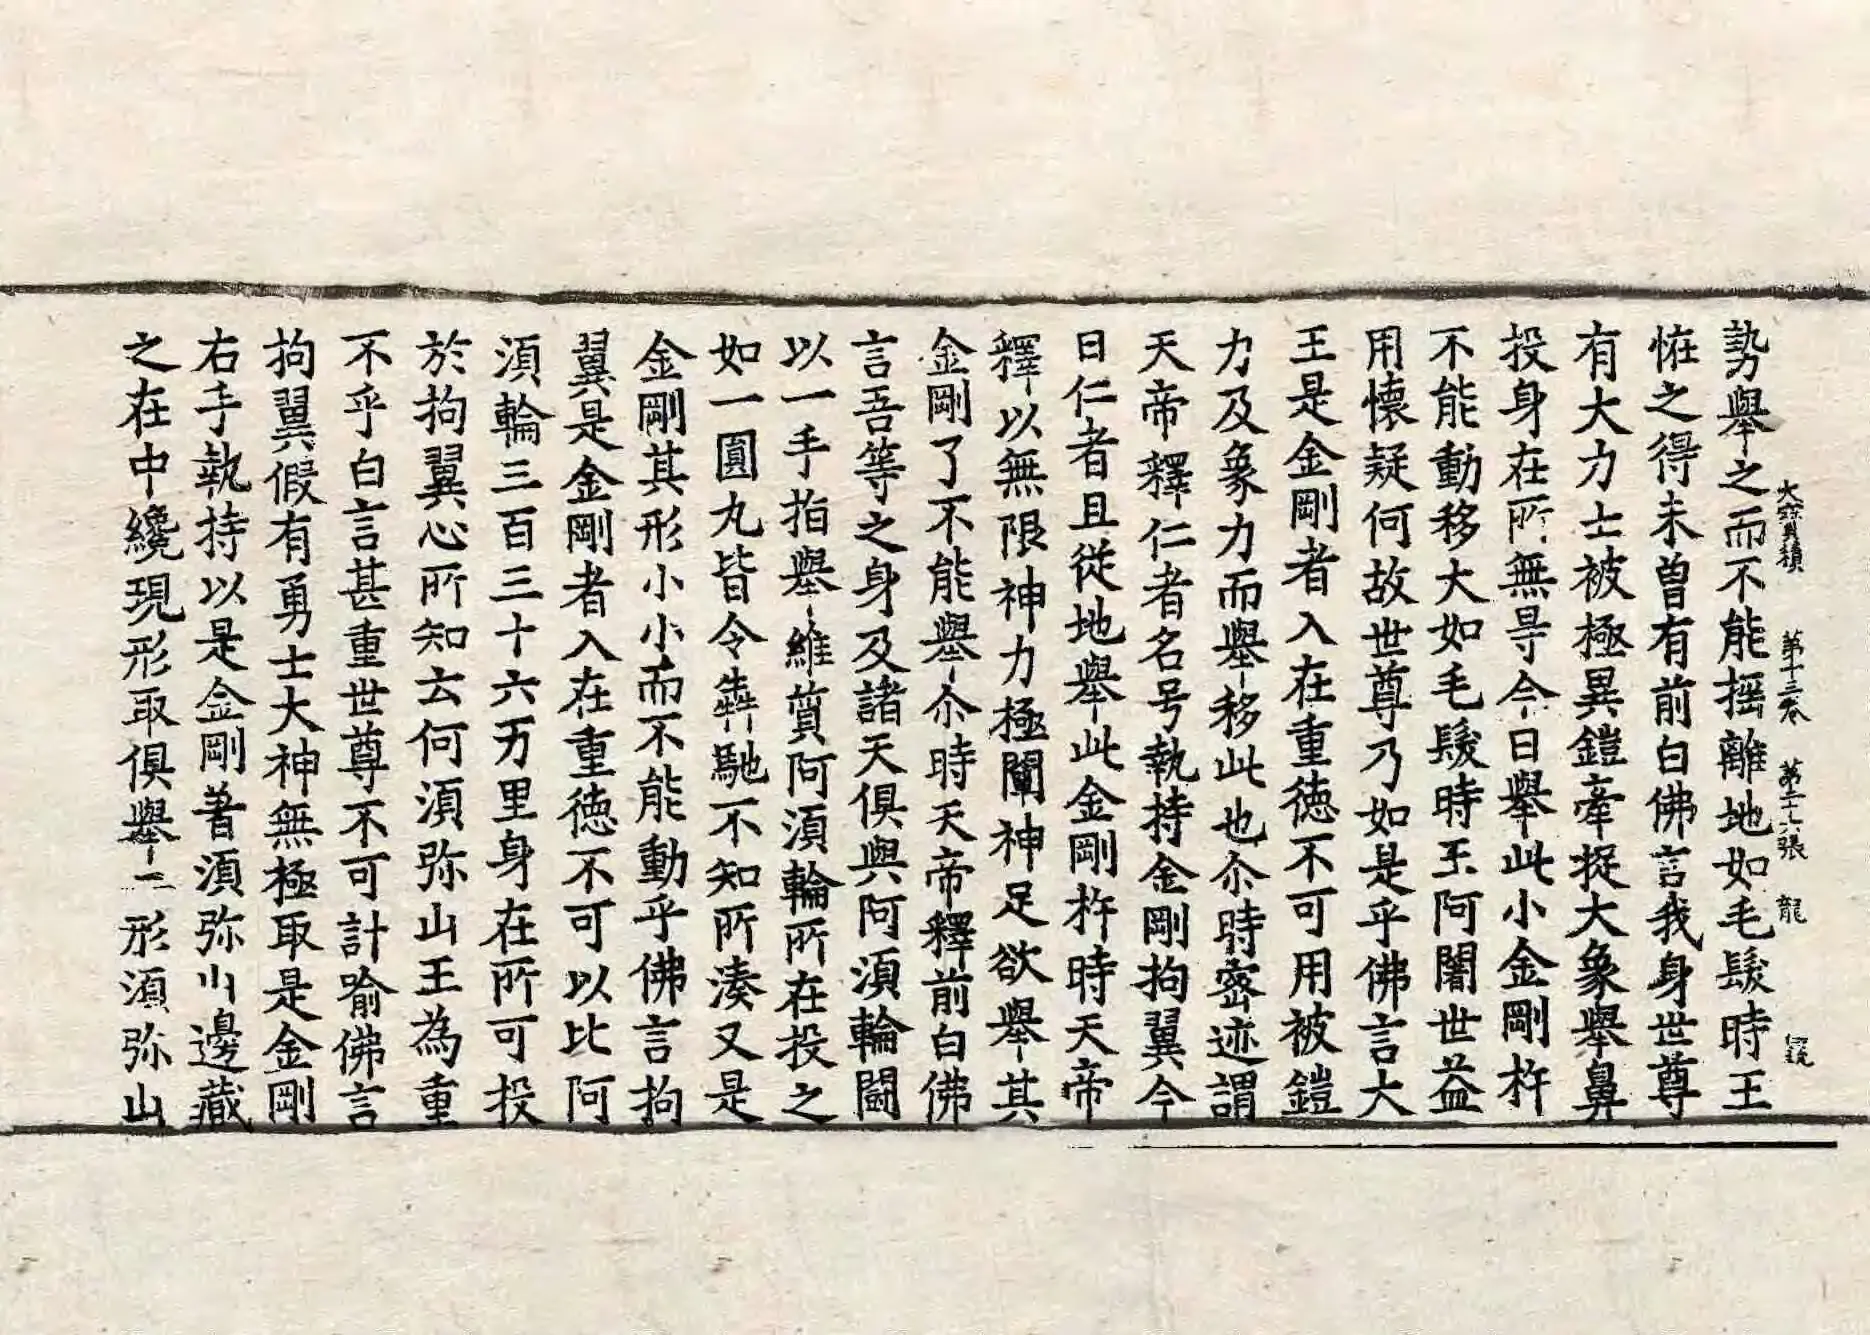 大寶積 第十三卷 第二十六張 龍
勢舉之而不能揺離地如毛髮時王
恠之得未曾有前白佛言我身世尊
有大力士被極異鎧牽捉大象舉鼻
投身在所無㝵今日舉此小金剛杵
不能動移大如毛髮時王阿闍世益
用懷疑何故世尊乃如是乎佛言大
王是金剛者入在重徳不可用被鎧
力及象力而舉移此也尒時密迹謂
天帝釋仁者名号執持金剛拘翼今
日仁者且從地舉此金剛杵時天帝
釋以無限神力極闡神足欲舉其
金剛了不能舉尒時天帝釋前白佛
言吾等之身及諸天俱與阿湏輪闘
以一手指舉維質阿湏輪所在投之
如一圓丸皆令犇馳不知所湊又是
金剛其形小小而不能動乎佛言拘
翼是金剛者入在重徳不可以比阿
湏輪三百三十六万里身在所可投
於拘翼心所知云何湏弥山王為重
不乎白言甚重世尊不可計喻佛言
拘翼假有勇士大神無極取是金剛
右手執持以是金剛著湏弥山邊藏
之在中纔現形取俱舉二形湏弥山